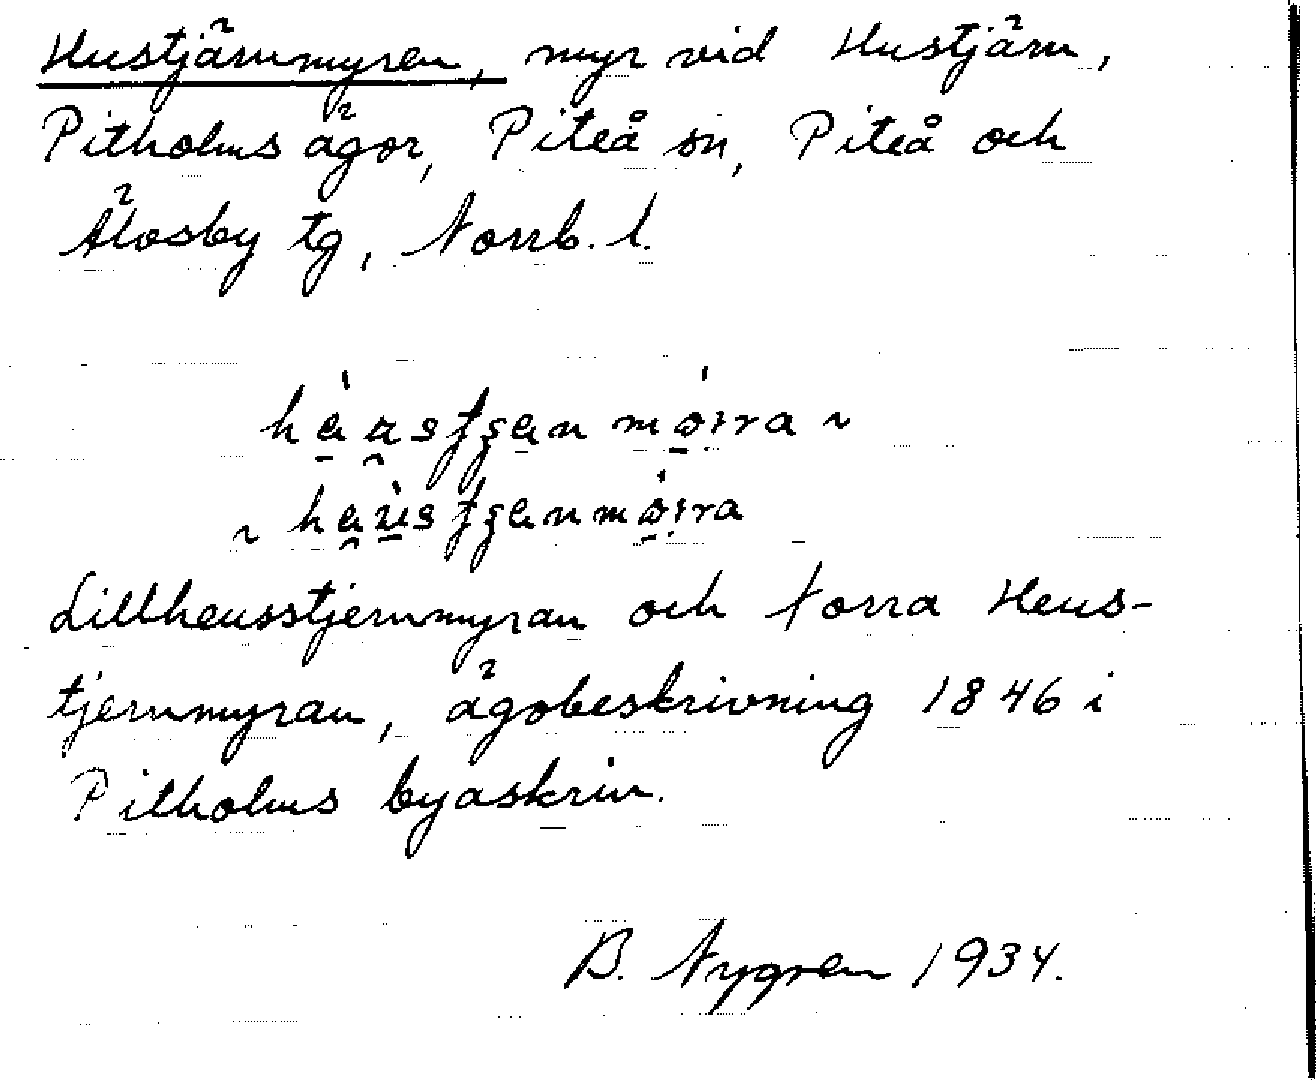 Hustjärnmyren, myr vid Hustjärn,
Pitholms ägor, Piteå sn, Piteå och
Älvsby tg, Norrb. l.
Lillheusstjernmyran och Norra Heus-
tjernmyran, ägobeskrivning 1846 i
Pitholms byaskrin.
B. Nygren 1934.